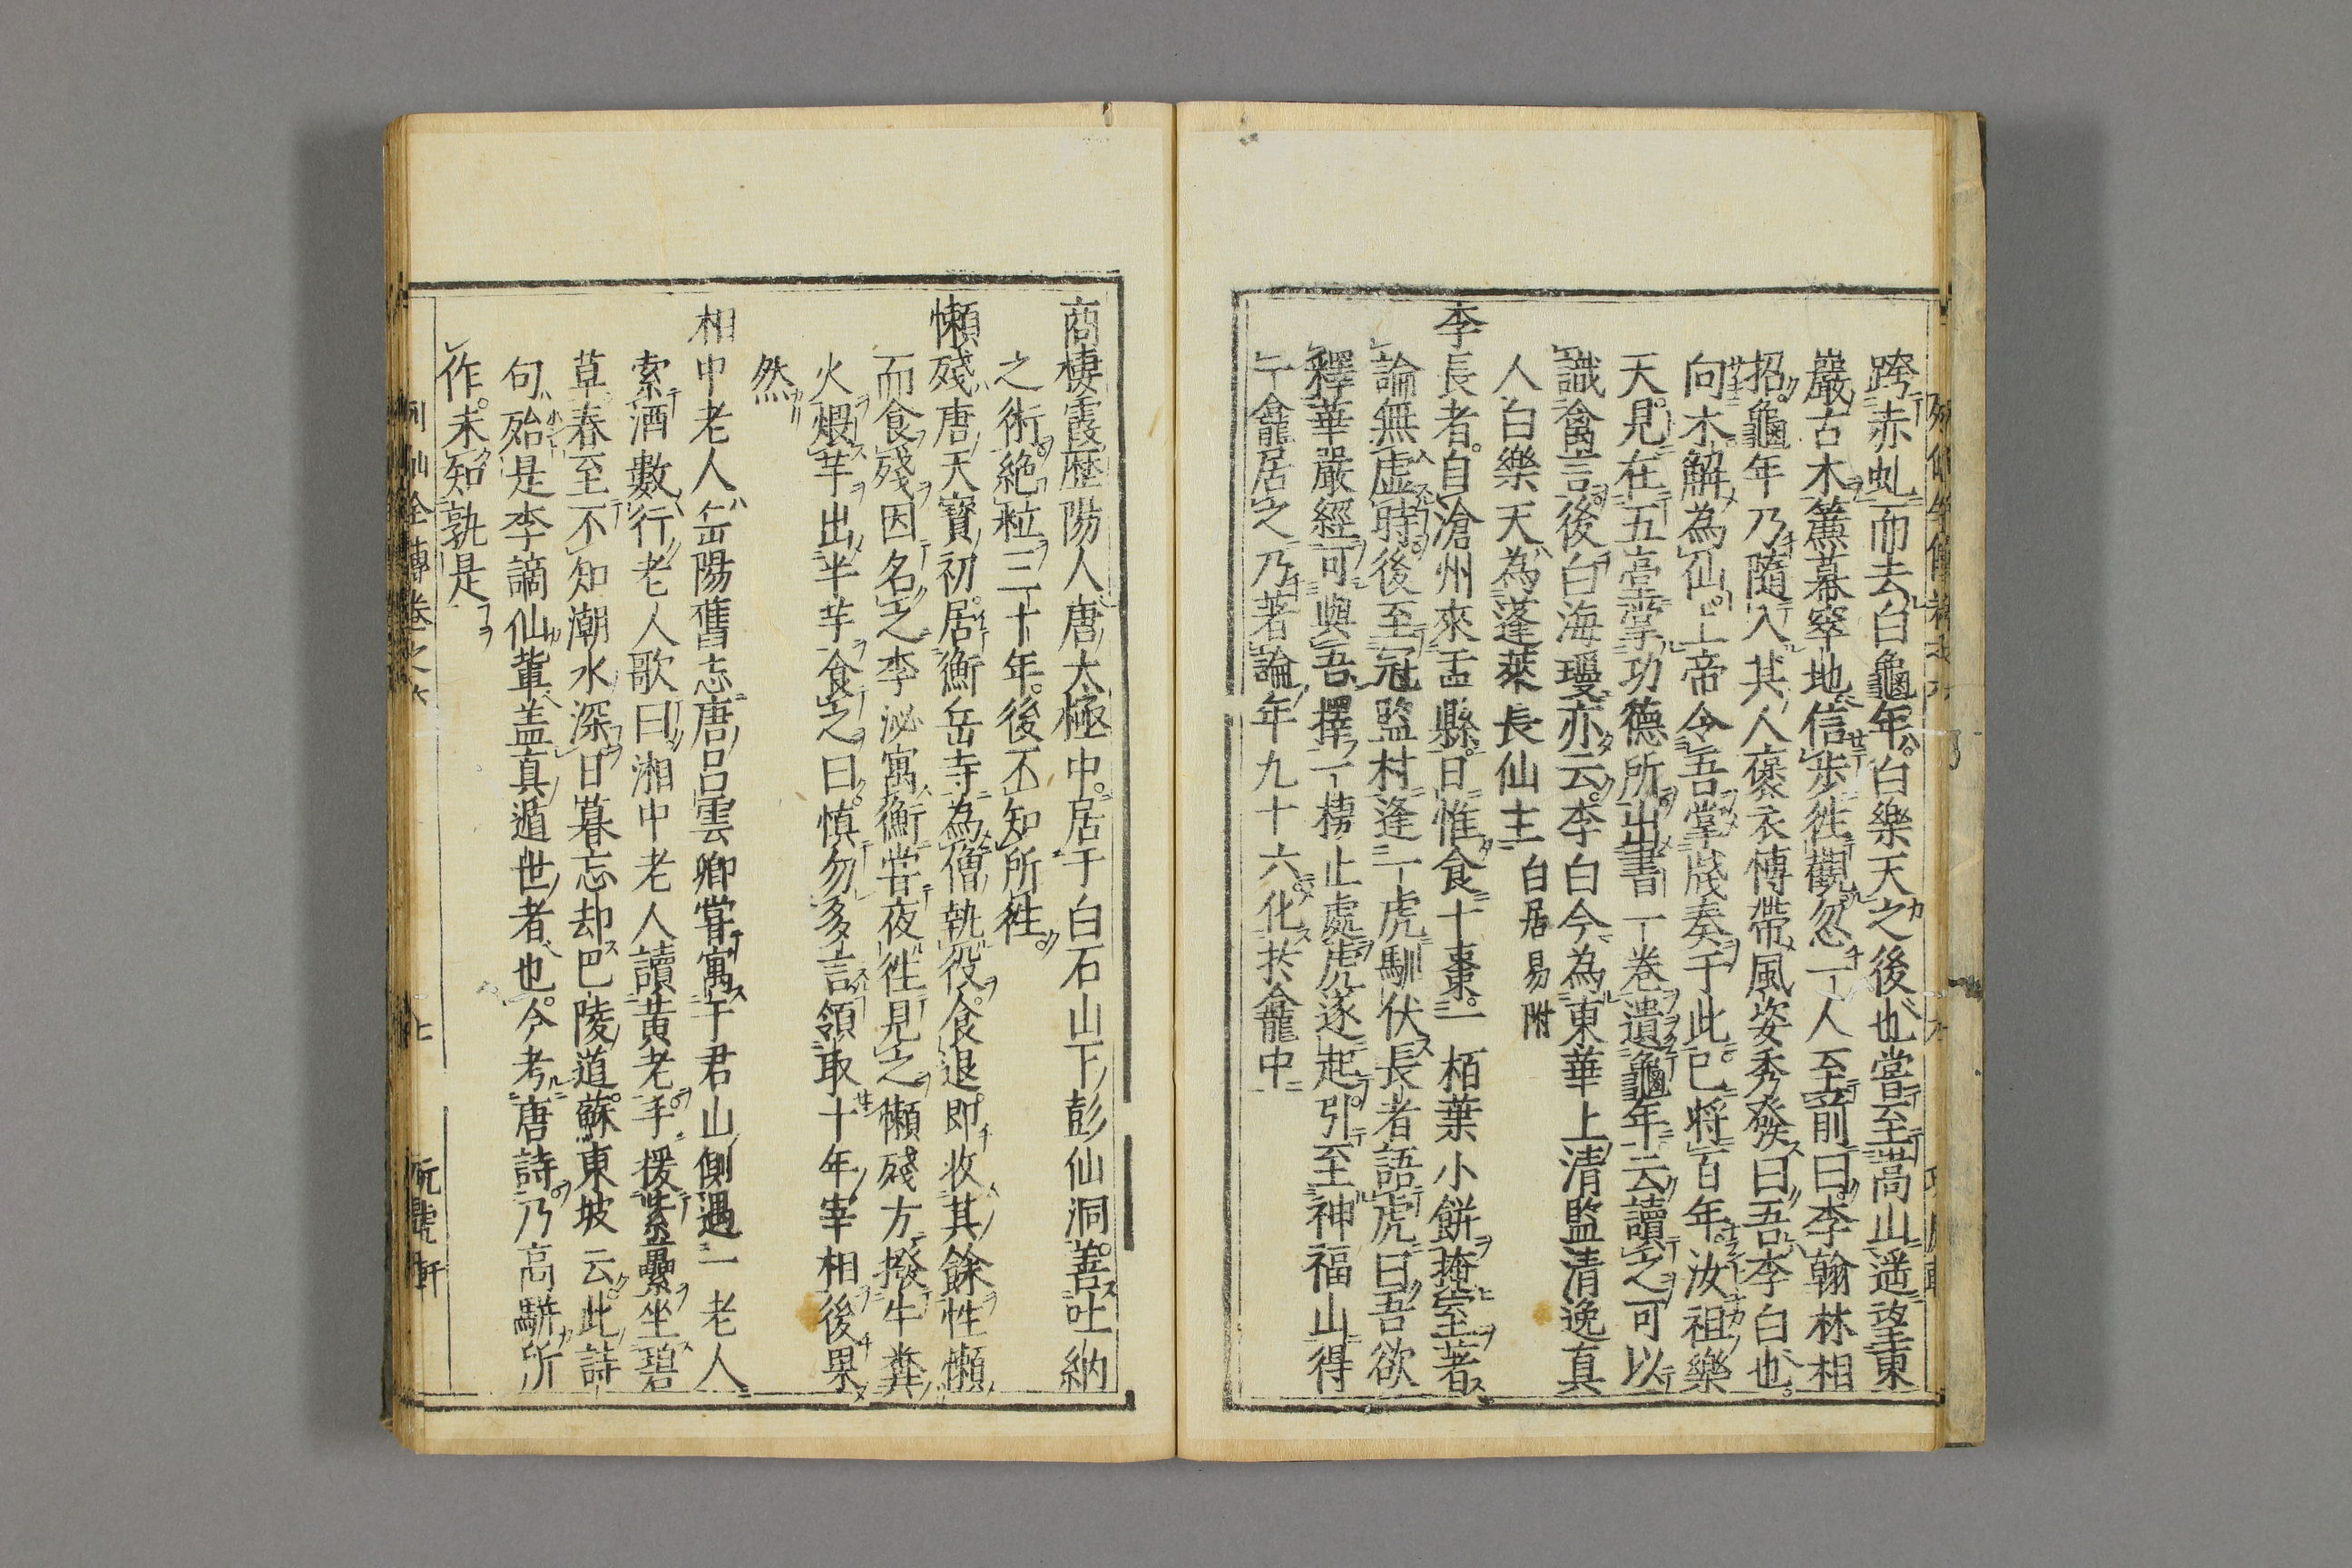 跨赤虬而去白龜年白樂天之後也嘗至嵩山遥望東
巖古木簾幕窣地信步往觀忽一人至前曰李翰林相
招龜年乃隨入其人褒衣博帶風姿秀發曰吾李白也
向水解為仙上帝令吾掌牋奏于此已将百年汝祖樂
天見在五臺掌功德所出書一卷遺龜年云讀之可以
識禽言後白海瓊亦云李白今為東華上清監清逸真
人白樂天為蓬萊長仙主白居易附
李長者自滄州來盂縣日惟食十棗一栢葉小餅掩室著
論無虚時後至冠監村逢一虎馴伏長者語虎曰吾欲
釋華嚴經可與吾擇一棲止處虎遂起引至神福山得
一龕居之乃著論年九十六化於龕中
商棲霞歷陽人唐太極中居于白石山下彭仙洞善吐納
之術絶粒三十年後不知所往
懶殘唐天寳初居衡岳寺為僧執役食退即收其餘性懶
而食殘因名之李泌寓衡嘗夜往見之懶殘方撥牛糞
火煨芋出半芋食之曰慎勿多言領取十年宰相後果
然
相中老人岳陽舊志唐吕雲卿嘗寓于君山側遇一老人
索酒數行老人歌曰湘中老人讀黃老手援紫藟坐碧
草春至不知潮水深日暮忘却巴陵道蘇東坡云此詩
句殆是李謫仙輩盖真遁世者也今考唐詩乃高駢所
作未知孰是
列仙全傳卷之六
七
玩虎軒